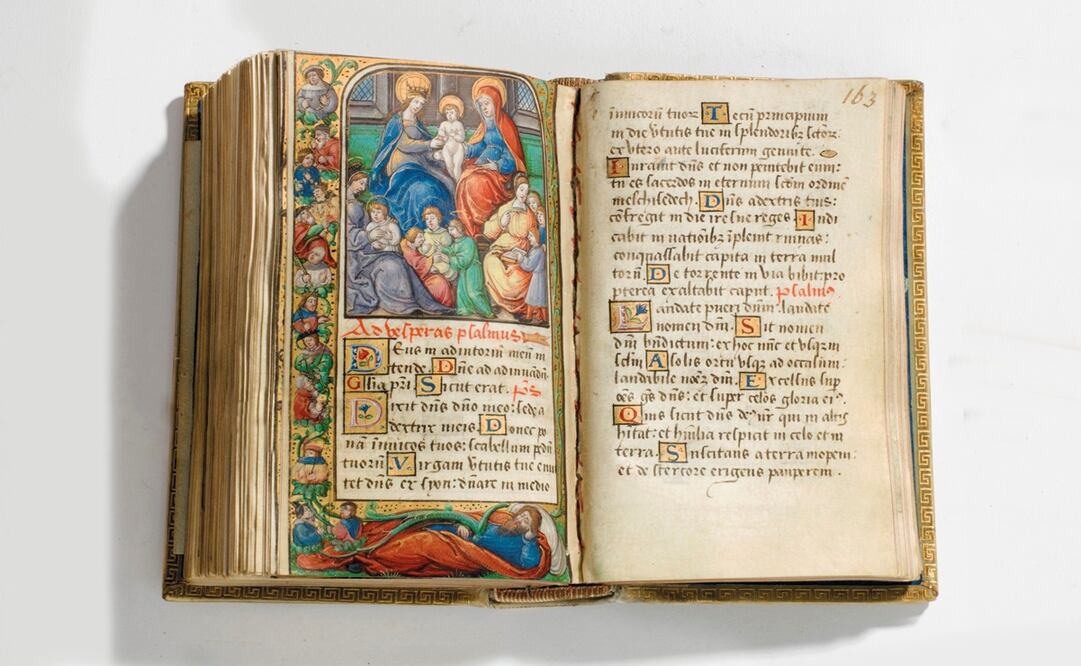 Ad vesperas psalmus
Deus in adiutoriū meū in
tende. Dn̄e ad adiuuādū
Gl̄ia pr̄i Sicut erat. ps̄
Dixit dn̄s dn̄o meo: sede a
dextris meis. Donec po
nā inimicos tuos: scabellum pedū
tuorū Virgam v̄tutis tue emi
tet dn̄s ex syon: dn̄are in medio
163
inimicorū tuoꝝ Tecū principium
in die v̄tutis tue in splendoribꝫ sctōꝝ
ex vtero ante luciferum genui te.
Iurauit dn̄s et non penitebit eum:
tu es sacerdos in eternum scdm̄ ordinē
melchisedech. Dn̄s a dextris tuis:
cōfregit in die ire sue reges Iudi
cabit in natiōibꝫ īplebit ruinas:
conquassabit capita in terra mul
torū De torrente in via bibit: pro
pterea exaltabit caput. psalmus
Laudate pueri dn̄m: laudate
nomen dn̄i. Sit nomen
dn̄i bn̄dictum: ex hoc nūc et vsqꝫ in
sclm̄ A solis ortu vsqꝫ ad occasum:
laudabile nomē dn̄i. Excelsus sup
oēs gē̄s dn̄s: et super celos gloria eiꝰ.
Quis sicut dn̄s deꝰ nr̄ qui in altis
hitat: et hūilia respicit in celo et in
terra. Suscitans a terra inopem:
et de stercore erigens pauperem.